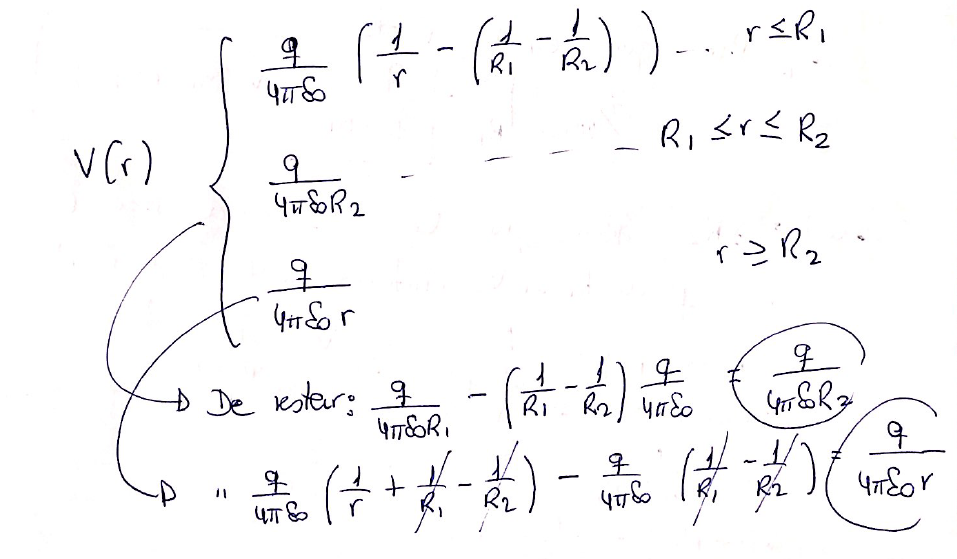 q/4πε₀ (1/r - (1/R₁ - 1/R₂)) - . . r ≤ R₁
V(r) { q/4πε₀R₂ - - - - R₁ ≤ r ≤ R₂
q/4πε₀ r r ≥ R₂
→ De restar: q/4πε₀R₁ - (1/R₁ - 1/R₂) q/4πε₀ = q/4πε₀R₂
→ " q/4πε₀ (1/r + 1/R₁ - 1/R₂) - q/4πε₀ (1/R₁ - 1/R₂) = q/4πε₀r